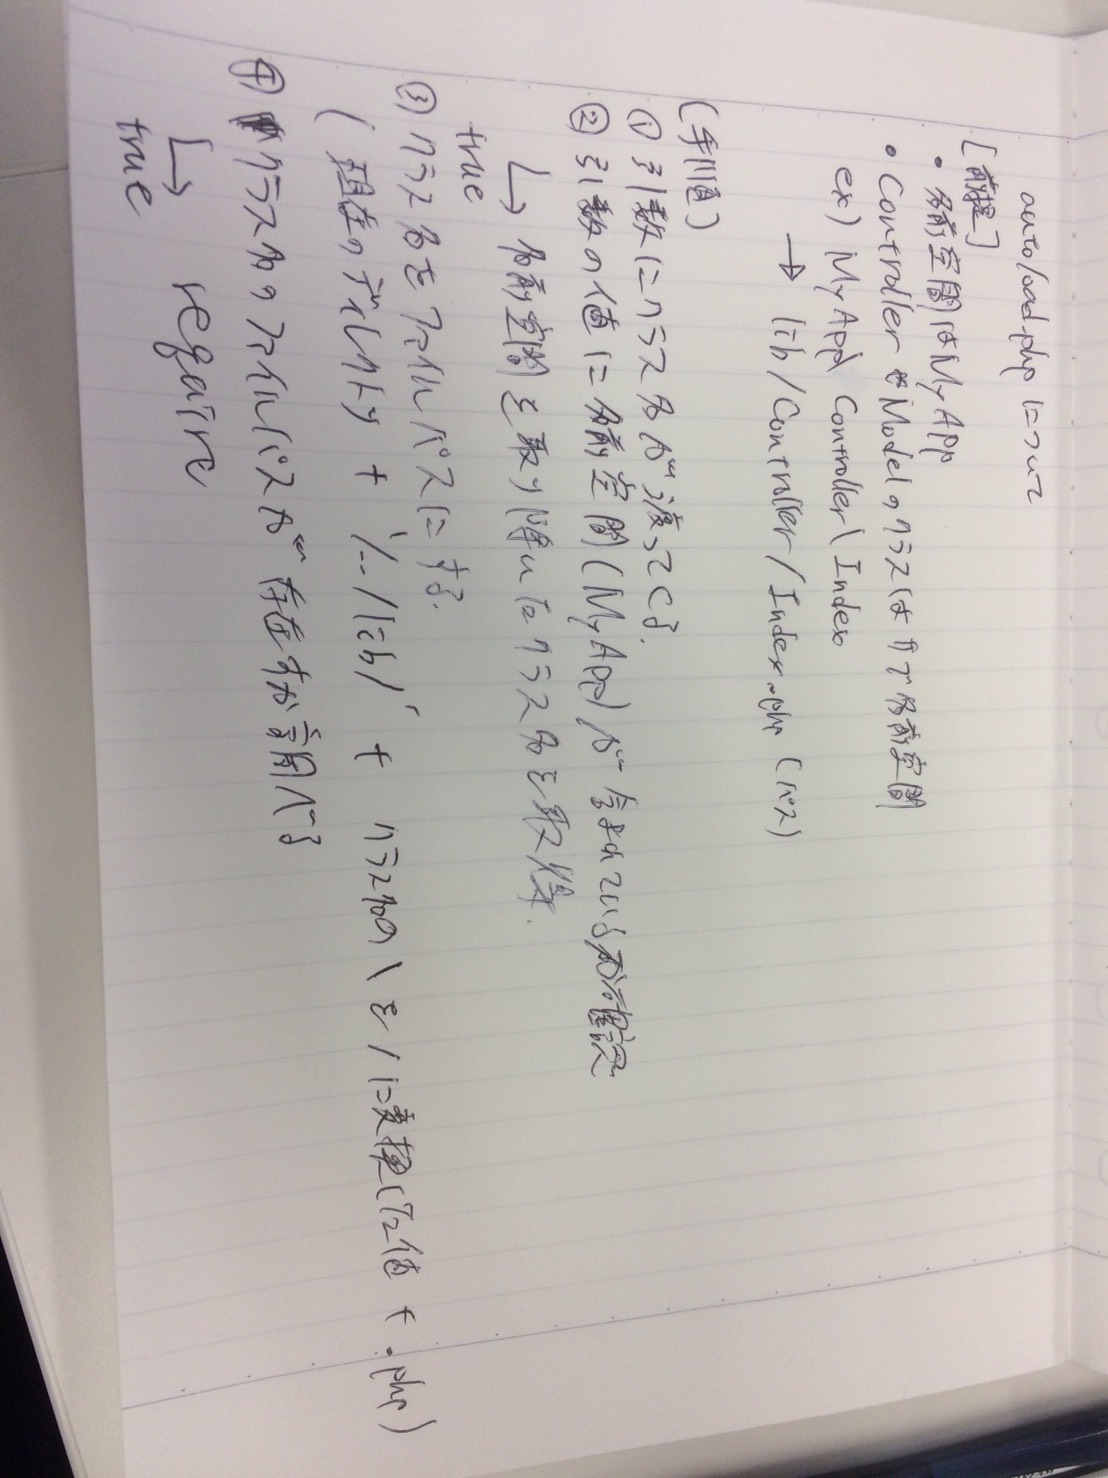 autoload.phpについて
[前提]
・名前空間はMyApp
・ControllerやModelのクラスはサブ名前空間
ex) MyApp Controller\Index
→ lib/Controller/Index.php (パス)
(手順)
① 引数にクラス名が渡ってくる.
② 引数の値に名前空間(MyApp)が含まれているか確認
↳ 名前空間を取り除いたクラス名を取得.
true
③ クラス名をファイルパスにする.
(現在のディレクトリ + '/../lib/' + クラス名の \ を / に変換した値 + .php)
④ クラス名のファイルパスが存在するか調べる
↳ regairc
true